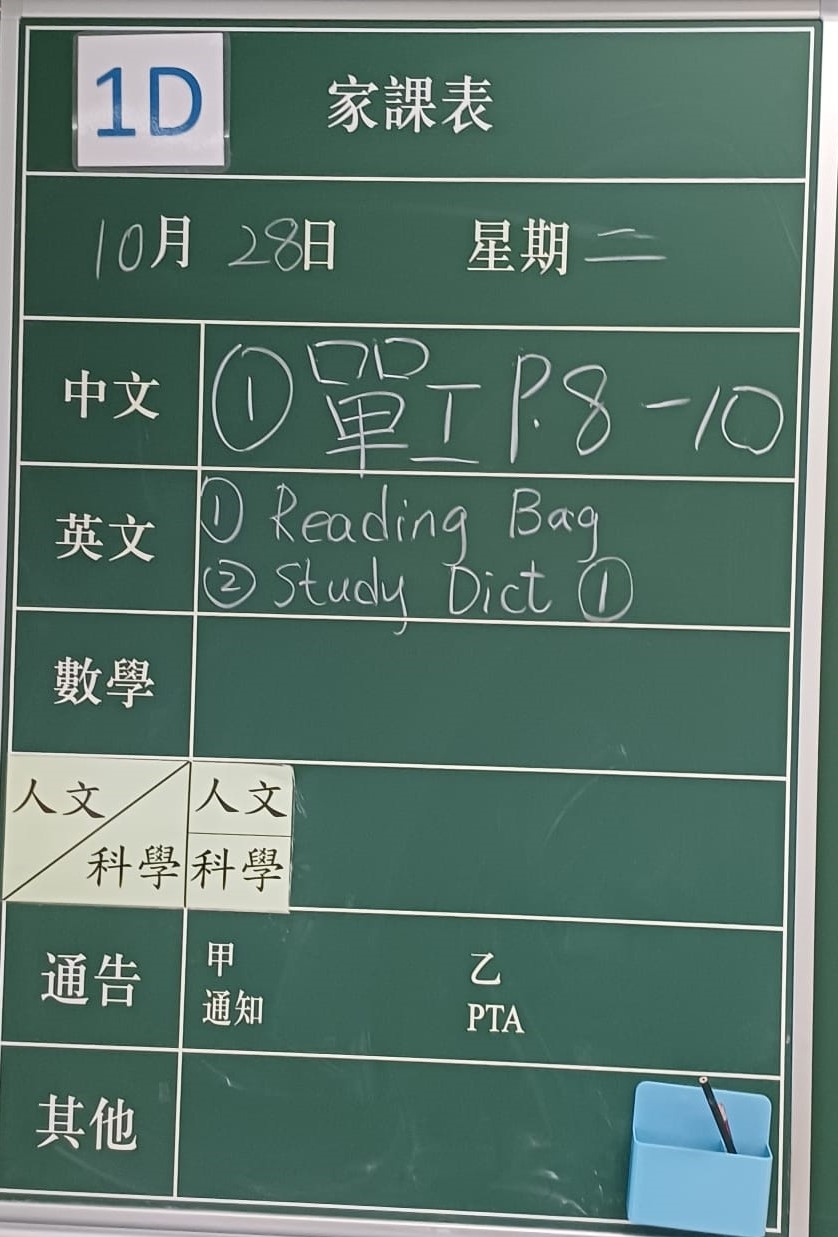 1D 家課表
10月 28日 星期二
中文 ① 單工 P.8-10
英文 ① Reading Bag
② Study Dict ①
數學
人文 人文
科學 科學
通告 甲 乙
通知 PTA
其他